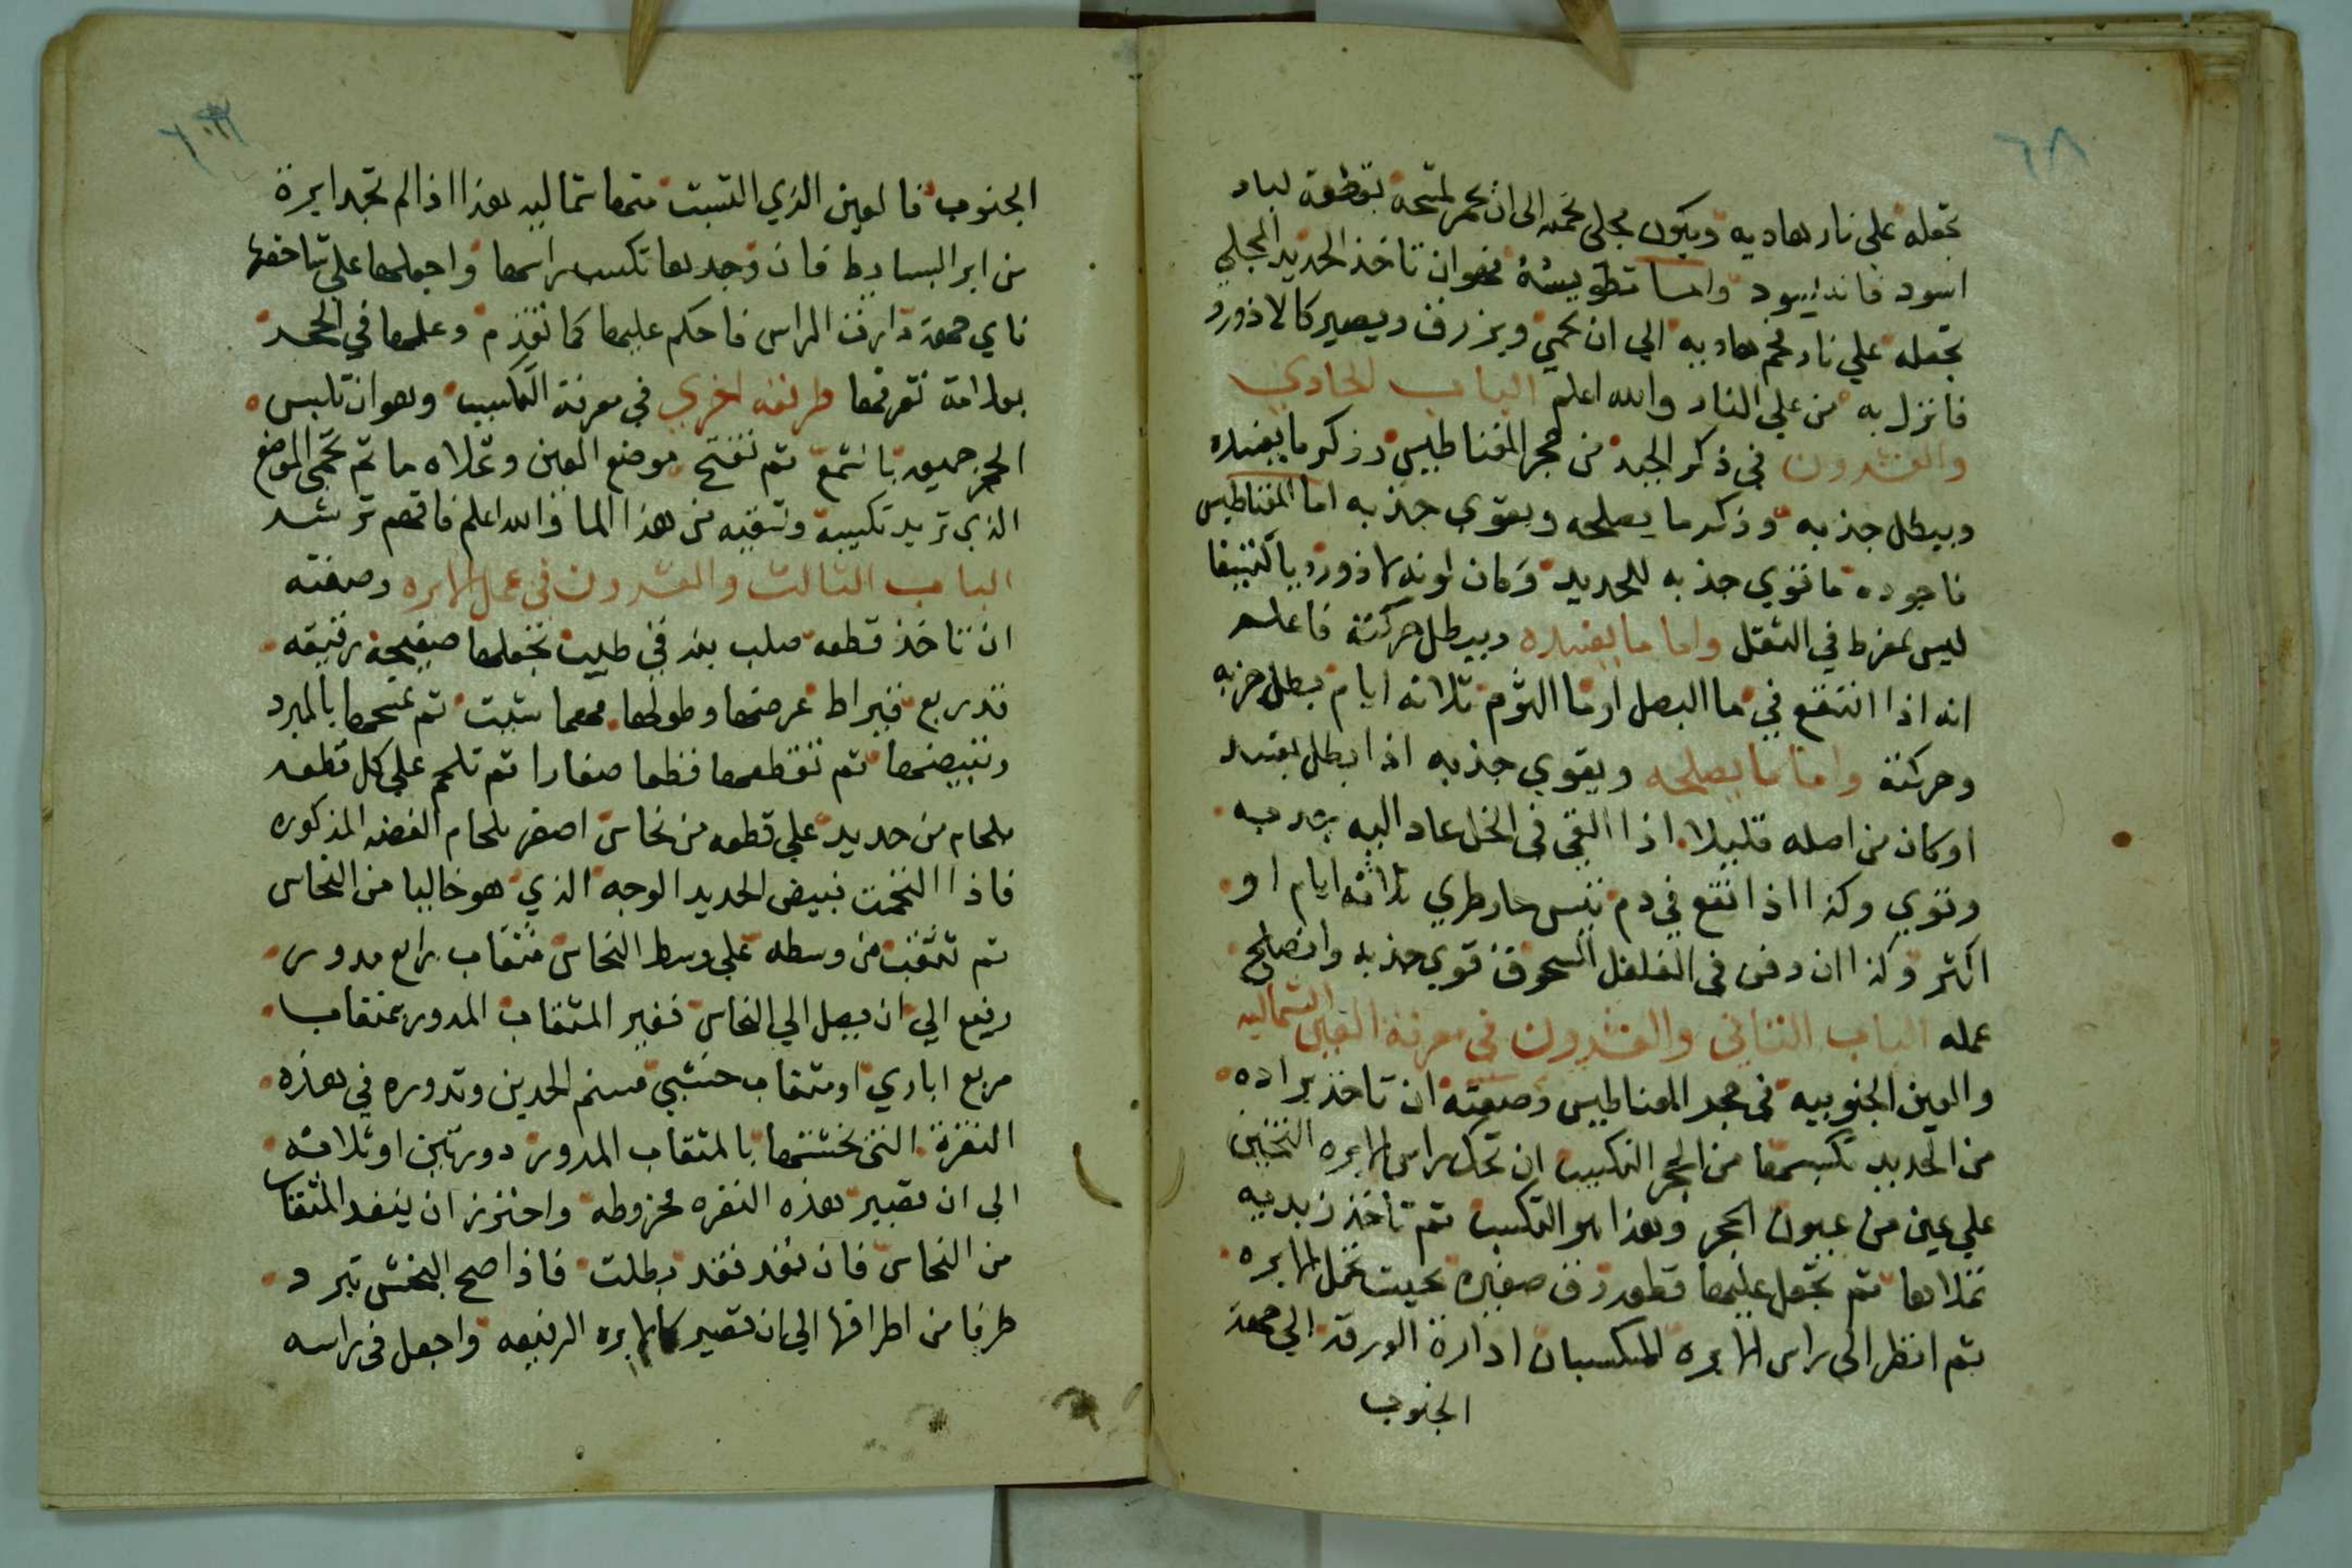 ٦٨
تجعله علي نار هاديه ويكون مجلي تحميه الى ان يحمر لمتحه بقطعة لباد
اسود فانه يسود واما تطويسه فهو ان تاخذ الحديد المجلي
تجعله علي نار فحم هاديه الي ان يحمي ويزرق ويصير كالازورد
فانزل به من علي النار والله اعلم الباب الحادي
والعشرون في ذكر الجيد من حجر المغناطيس وذكر ما يفسده
ويبطل جذبه وذكر ما يصلحه ويقوي جذبه اما المغناطيس
فاجوده ما قوي جذبه للحديد وكان لونه لازورديا كثيفا
ليس بمفرط في الثقل واما ما يفسده ويبطل حركته فاعلم
انه اذا انتقع في ما البصل او ما الثوم ثلاثه ايام بطل جذبه
وحركته واما ما يصلحه ويقوي جذبه اذا بطل بفسد
او كان من اصله قليلا اذا القي في الخل عاد اليه جذبه
وقوي وكذا اذا نقع في دم تيس حار طري ثلاثة ايام او
اكثر وكذا ان دفن في الفلفل المسحوق قوي جذبه وانصلح
عمله الباب الثاني والعشرون في معرفة العين الشماليه
والعين الجنوبيه في حجر المغناطيس وصفته ان تاخذ براده
من الحديد تكبسها من الحجر التكبيب ان تحك راس الابره التخين
علي عين من عيون الحجر وهذا هو التكسيب ثم تاخذ زبديه
تملاها ثم تجعل عليها قطعة زف صغيره بحيث تحمل الابره
ثم انظر الي راس الابره المكسبان ادارة الورقه الي جهة
الجنوب
الجنوب فالعين الذي التسبت منها شماليه هذا اذا لم تجد ابرة
من ابر البسايط فان وجدها تكسب راسها واجعلها علي شاخصها
فاي جهة دارت الراس فاحكم عليها كما تقدم وعلمها في الحجر
بعلامة تعرفها طريقه اخري في معرفة التكسيب وهو ان تلبس
الحجر جميعه بالشمع ثم تفتح موضع العين وتملاه ما ثم تحمي الموضع
الذي تريد تكبيبه وتسقيه من هذا الما والله اعلم فافهم ترشد
الباب الثالث والعشرون في عمل الابره وصفته
ان تاخذ قطعه صلب بغدفي طيب تجعلها صفيحة رقيقه
قدر ربع قيراط عرضها وطولها مهما شيت ثم تمسحها بالمبرد
وتبيضها ثم تقطعها قطعا صغارا ثم تلحم علي كل قطعه
بلحام من حديد علي قطعه من نحاس اصفر بلحام الفضه المذكوره
فاذا التحمت تبيض الحديد الوجه الذي هو خاليا من النحاس
ثم تثقبت من وسطه علي وسط النحاس مثقاب رابع مدور
رفيع الي ان يصل الي النحاس فغير المثقاب المدور بمثقاب
مربع اباري او مثقاب خشبي مسنم الحدين وتدوره في هذه
النقرة التي بخشتها بالمثقاب المدور دورتين او ثلاثه
الي ان تصير هذه النقره مخروطه واحترز ان ينفد المثقاب
من النحاس فان نفد فقد بطلت فاذا صح البخش تبرد
طرفا من اطرافها الي ان تصير كالابره الرفيعه واجعل في راسه